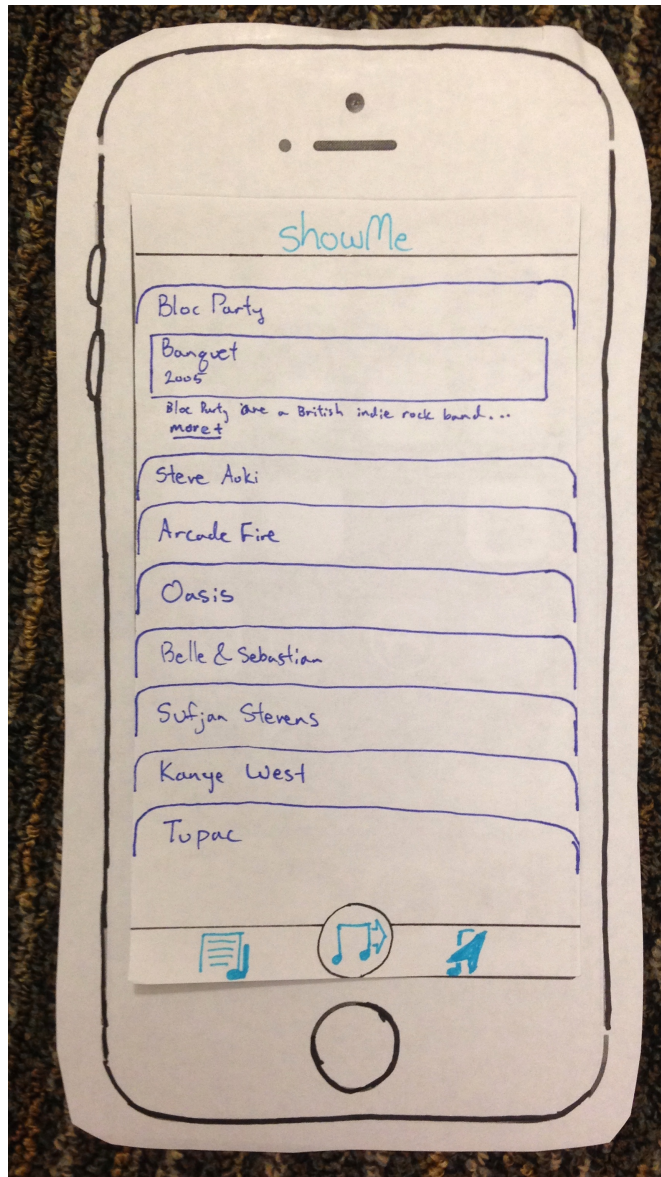 showMe
Bloc Party
Banquet
2005
Bloc Party are a British indie rock band...
more +
Steve Aoki
Arcade Fire
Oasis
Belle & Sebastian
Sufjan Stevens
Kanye West
Tupac